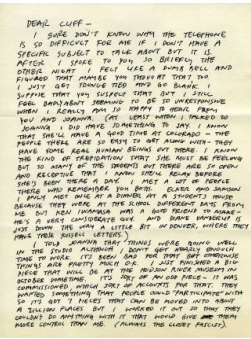 DEAR CLIFF-
I SURE DON'T KNOW WHY THE TELEPHONE
IS SO DIFFICULT FOR ME IF I DON'T HAVE A
SPECIFIC SUBJECT TO TALK ABOUT BUT IT IS.
AFTER I SPOKE TO YOU SO BRIEFLY THE
OTHER NIGHT I FELT LIKE A DUMB BELL AND
FIGURED THAT MAYBE YOU THOUGHT THAT TOO.
I JUST GET TONGUE TIED AND GO BLANK. I
SUPPOSE THAT YOU SUSPECT THAT BUT I STILL
FEEL BAD ABOUT SEEMING TO BE SO UNRESPONSIVE
WHEN I REALLY AM SO HAPPY TO HEAR FROM
YOU AND JOANNA. (AT LEAST WHEN I TALKED TO
JOANNA I DID HAVE SOMETHING TO SAY. I KNOW
THAT SHE'LL HAVE A GOOD TIME AT COLORADO - THE
PEOPLE THERE ARE SO EASY TO GET ALONG WITH - THEY
HAVE SOME REAL HUMAN BEINGS OUT THERE. I KNOW
THE KIND OF TREPIDATION THAT SHE MUST BE FEELING
BUT SO MANY OF THE STUDENTS OUT THERE ARE SO OPEN
AND RECEPTIVE THAT I KNOW SHE'LL RELAX BEFORE
SHE'S BEEN THERE A DAY. I MET A LOT OF PEOPLE
THERE WHO REMEMBER YOU BOTH. CLARK AND SAMSON
I ONLY MET ONCE AT A DINNER IN A STUDENT'S HOUSE
BECAUSE THEY WERE AT THE SCHOOL DIFFERENT DAYS FROM
ME BUT KEN IWAMASA WAS A GOOD FRIEND TO MAKE -
HE'S A VERY CONSIDERATE GUY. AND DAVE
JUST DOWN THE WAY A LITTLE BIT IN DENVER, WHERE THEY
HAVE THIS RUSSELL LETTERS.)
I TOLD JOANNA THAT THINGS WERE GOING WELL
IN THE STUDIO ALTHOUGH I DON'T GET NEARLY ENOUGH
TIME TO WORK. IT'S BEEN BAD FOR THAT BUT OTHERWISE
THINGS ARE PRETTY MUCH O.K. I JUST FINISHED A BIG
PIECE THAT WILL BE AT THE HUDSON RIVER MUSEUM IN
OCTOBER SOMETIME. IT'S SORT OF AN ODD PIECE - IT WAS
COMMISSIONED WHICH SORT OF ACCOUNTS FOR THAT. THEY
WANTED SOMETHING THAT PEOPLE COULD "PARTICIPATE" WITH
SO IT'S GOT 7 PIECES THAT CAN BE MOVED INTO ABOUT
A ZILLION PLACES BUT I WORKED IT OUT SO THAT THEY
COULDN'T DO ANYTHING WITH IT THAT WOULD GIVE THEM
MORE CONTROL THAN ME. (ALWAYS THE CLOSET FASCIST).